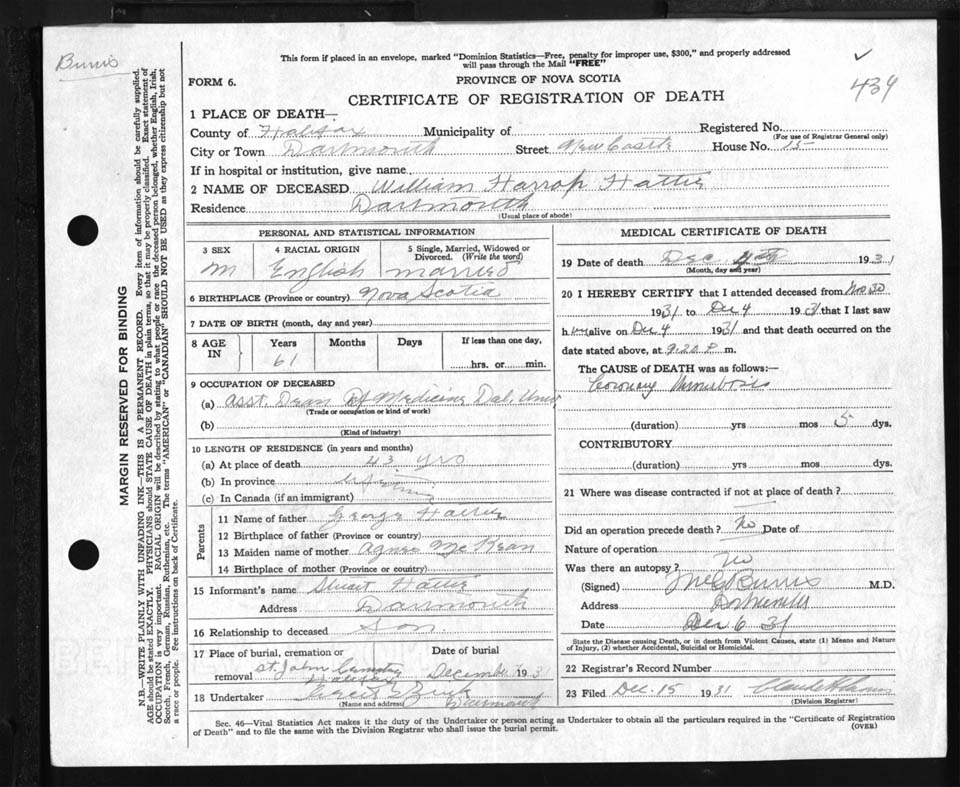 Burris
This form if placed in an envelope, marked "Dominion Statistics—Free, penalty for improper use, $300," and properly addressed
will pass through the Mail "FREE"
434
FORM 6.
PROVINCE OF NOVA SCOTIA
CERTIFICATE OF REGISTRATION OF DEATH
1 PLACE OF DEATH—
County of Halifax Municipality of Registered No.
(For use of Registrar General only)
City or Town Dartmouth Street New Castle House No. 15
If in hospital or institution, give name
2 NAME OF DECEASED William Harrop Hattie
Residence Dartmouth
(Usual place of abode)
MARGIN RESERVED FOR BINDING
N.B.—WRITE PLAINLY WITH UNFADING INK—THIS IS A PERMANENT RECORD. Every item of information should be carefully supplied.
AGE should be stated EXACTLY. PHYSICIANS should STATE CAUSE OF DEATH in plain terms, so that it may be properly classified. Exact statement of
OCCUPATION is very important. RACIAL ORIGIN will be described by stating to what people or race the deceased person belonged, whether English, Irish,
Scotch, French, German, Russian, Ruthenian, etc. The terms "AMERICAN" or "CANADIAN" SHOULD NOT BE USED as they express citizenship but not
a race or people. See instructions on back of Certificate.
PERSONAL AND STATISTICAL INFORMATION
3 SEX 4 RACIAL ORIGIN 5 Single, Married, Widowed or
Divorced. (Write the word)
M English married
6 BIRTHPLACE (Province or country) Nova Scotia
7 DATE OF BIRTH (month, day and year)
8 AGE IN Years Months Days If less than one day,
61 hrs. or min.
9 OCCUPATION OF DECEASED
(a) Asst. Dean of Medicine Dal. Univ.
(Trade or occupation or kind of work)
(b)
(Kind of industry)
10 LENGTH OF RESIDENCE (in years and months)
(a) At place of death 43 yrs
(b) In province
(c) In Canada (if an immigrant)
Parents
11 Name of father George Hattie
12 Birthplace of father (Province or country)
13 Maiden name of mother Agnes McKean
14 Birthplace of mother (Province or country)
15 Informant's name Stuart Hattie
Address Dartmouth
16 Relationship to deceased Son
17 Place of burial, cremation or Date of burial
removal St. John Cemetery Halifax December 7 1931
18 Undertaker Dartmouth
(Name and address)
MEDICAL CERTIFICATE OF DEATH
19 Date of death Dec 4th 1931
(Month, day and year)
20 I HEREBY CERTIFY that I attended deceased from Nov 30
1931 to Dec 4 1931 that I last saw
him alive on Dec 4 1931 and that death occurred on
date stated above, at 9.20 P m.
The CAUSE of DEATH was as follows:—
Coronary Thrombosis
(duration) yrs mos 5 dys.
CONTRIBUTORY
(duration) yrs mos dys.
21 Where was disease contracted if not at place of death?
Did an operation precede death? No Date of
Nature of operation
Was there an autopsy? No
(Signed) Burris M.D.
Address Dartmouth
Date Dec 6 31
State the Disease causing Death, or in death from Violent Causes, state (1) Means and Nature
of Injury, (2) whether Accidental, Suicidal or Homicidal.
22 Registrar's Record Number
23 Filed Dec. 15 1931
(Division Registrar)
Sec. 46—Vital Statistics Act makes it the duty of the Undertaker or person acting as Undertaker to obtain all the particulars required in the "Certificate of Registration
of Death" and to file the same with the Division Registrar who shall issue the burial permit.
(OVER)